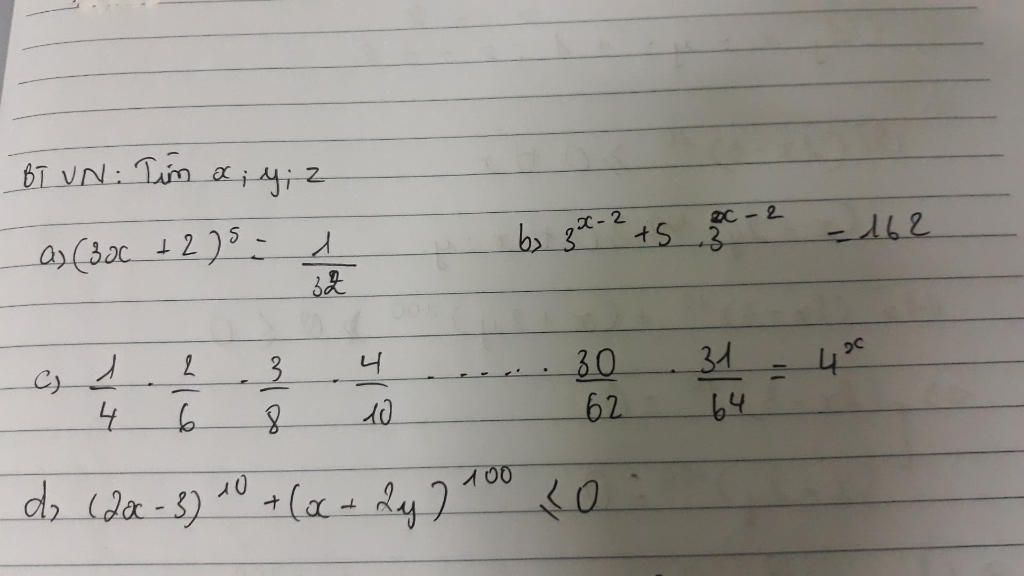 BTVN: Tìm x; y; z
a) (3x + 2)^5 = 1/32 b) 3^{x-2} + 5 . 3^{x-2} = 162
c) 1/4 . 2/6 . 3/8 . 4/10 . ..... . 30/62 . 31/64 = 4^x
d) (2x-3)^{10} + (x + 2y)^{100} ≤ 0